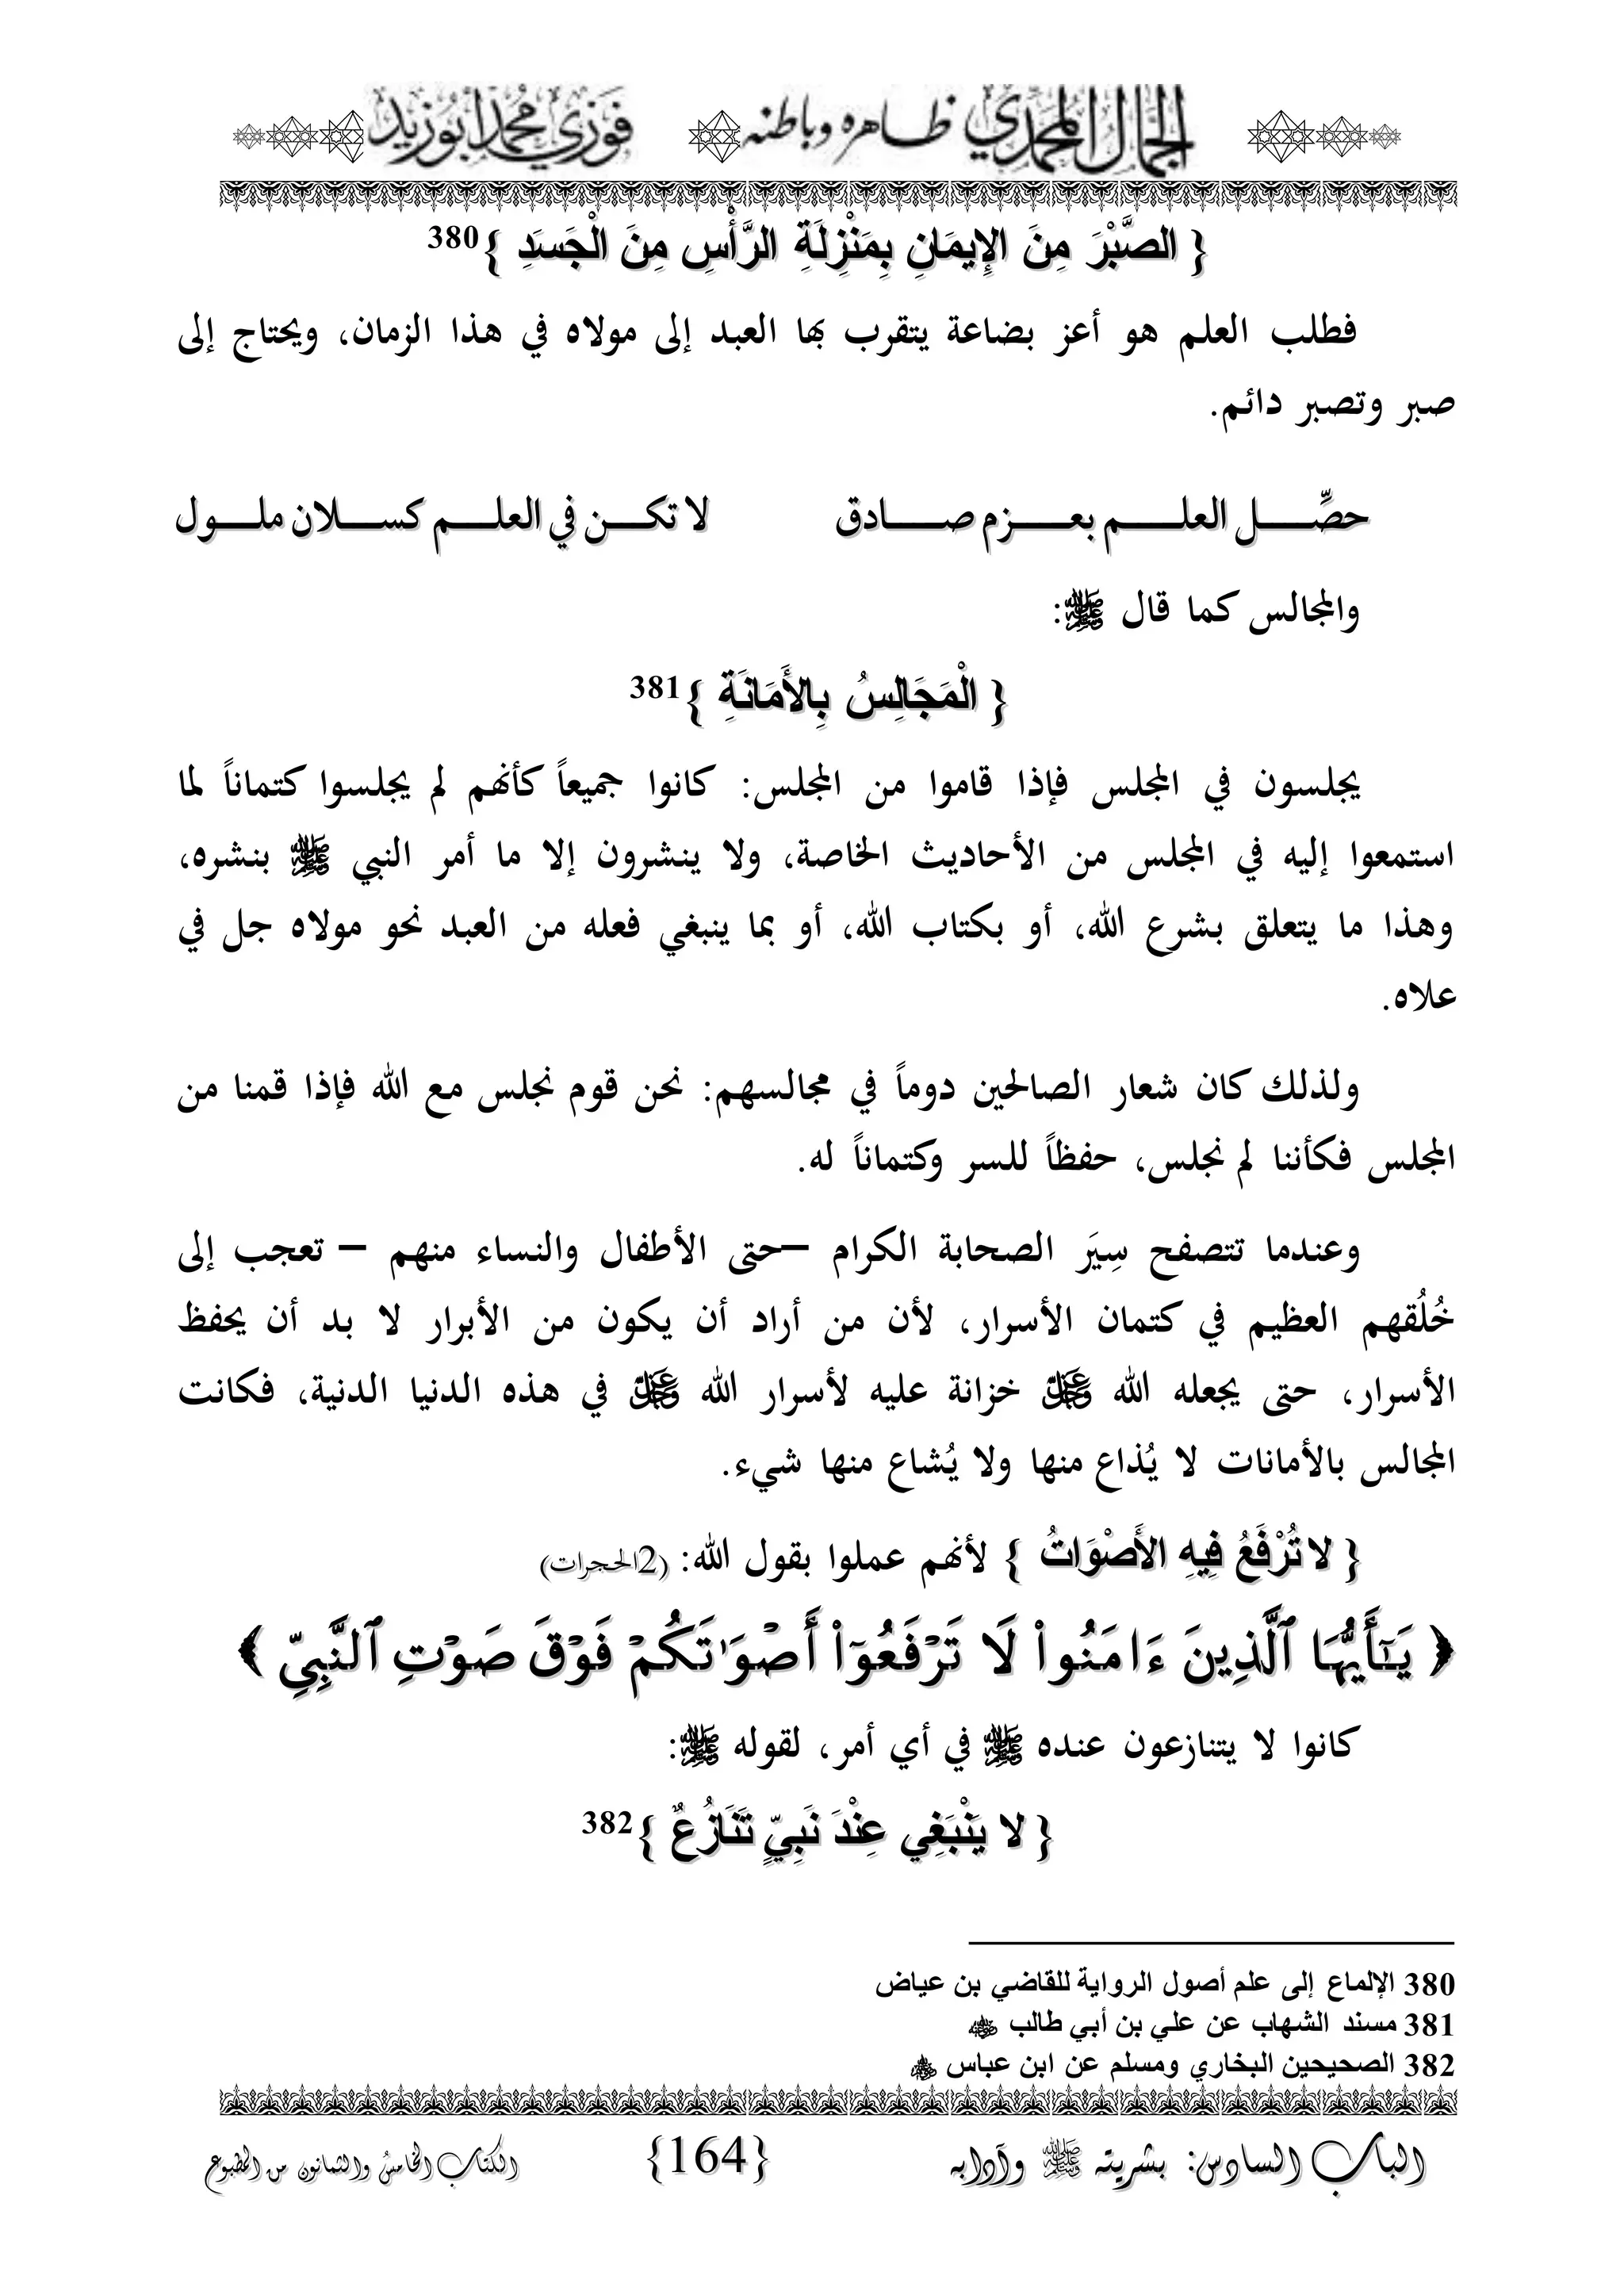 الجمال المحمدي ظاهره وباطنه فوزي محمد أبوزيد
{ الصَّبْرَ مِنَ الإِيمَانِ بِمَنْزِلَةِ الرَّأْسِ مِنَ الْجَسَدِ }380
فطلب العلم هو أعز بضاعة يتقرب بها العبد إلى مولاه في هذا الزمان، ويحتاج إلى
صبر وتصبر دائم.
حصِّـــل العلـــم بعـــزم صـــادق لا تكـــن في العلـــم كســـلان ملـــول
والمجالس كما قال ﷺ:
{ الْمَجَالِسُ بِالأَمَانَةِ }381
يجلسون في المجلس فإذا قاموا من المجلس: كانوا جميعاً كأنهم لم يجلسوا كتماناً لما
استمعوا إليه في المجلس من الأحاديث الخاصة، ولا ينشرون إلا ما أمر النبي ﷺ بنشره،
وهذا ما يتعلق بشرع الله، أو بكتاب الله، أو بما ينبغي فعله من العبد نحو مولاه جل في
علاه.
ولذلك كان شعار الصالحين دوماً في مجالسهم: نحن قوم نجلس مع الله فإذا قمنا من
المجلس فكأننا لم نجلس، حفظاً للسر وكتماناً له.
وعندما تتصفح سِيَر الصحابة الكرام –حتى الأطفال والنساء منهم – تعجب إلى
خُلُقهم العظيم في كتمان الأسرار، لأن من أراد أن يكون من الأبرار لا بد أن يحفظ
الأسرار، حتى يجعله الله عزوجل خزانة عليه لأسرار الله عزوجل في هذه الدنيا الدنية، فكانت
المجالس بالأمانات لا يُذاع منها ولا يُشاع منها شيء.
{ لا تُرْفَعُ فِيهِ الأَصْوَاتُ } لأنهم عملوا بقول الله: (2الحجرات)
﴿ يَـٰٓأَيُّهَا ٱلَّذِينَ ءَامَنُوا۟ لَا تَرْفَعُوٓا۟ أَصْوَٰتَكُمْ فَوْقَ صَوْتِ ٱلنَّبِيِّ ﴾
كانوا لا يتنازعون عنده ﷺ في أي أمر، لقوله ﷺ:
{ لا يَنْبَغِي عِنْدَ نَبِيٍّ تَنَازُعٌ }382
380 الإلماع إلى علم أصول الرواية للقاضي بن عياض
381 مسند الشهاب عن علي بن أبي طالب
382 الصحيحين البخاري ومسلم عن ابن عباس
الباب السادس: بشريته ﷺ وآدابه {164} الكتاب الخامس والثمانون من المطبوع